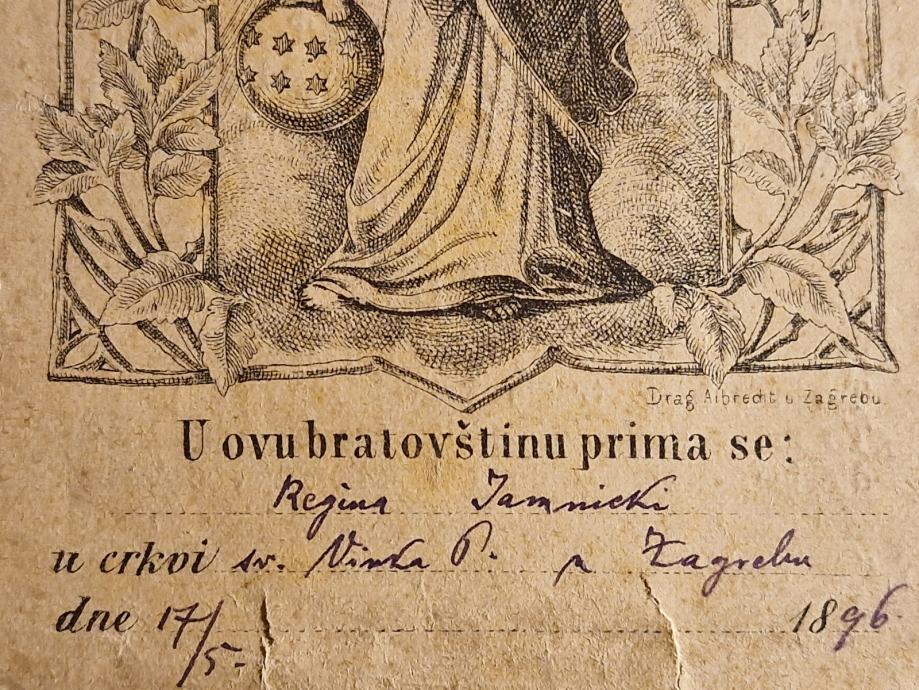 Drag Albrecht u Zagrebu.
U ovu bratovštinu prima se:
Regina Jamnicki
u crkvi sv. Vinka P. u Zagrebu
dne 17/5. 1896.